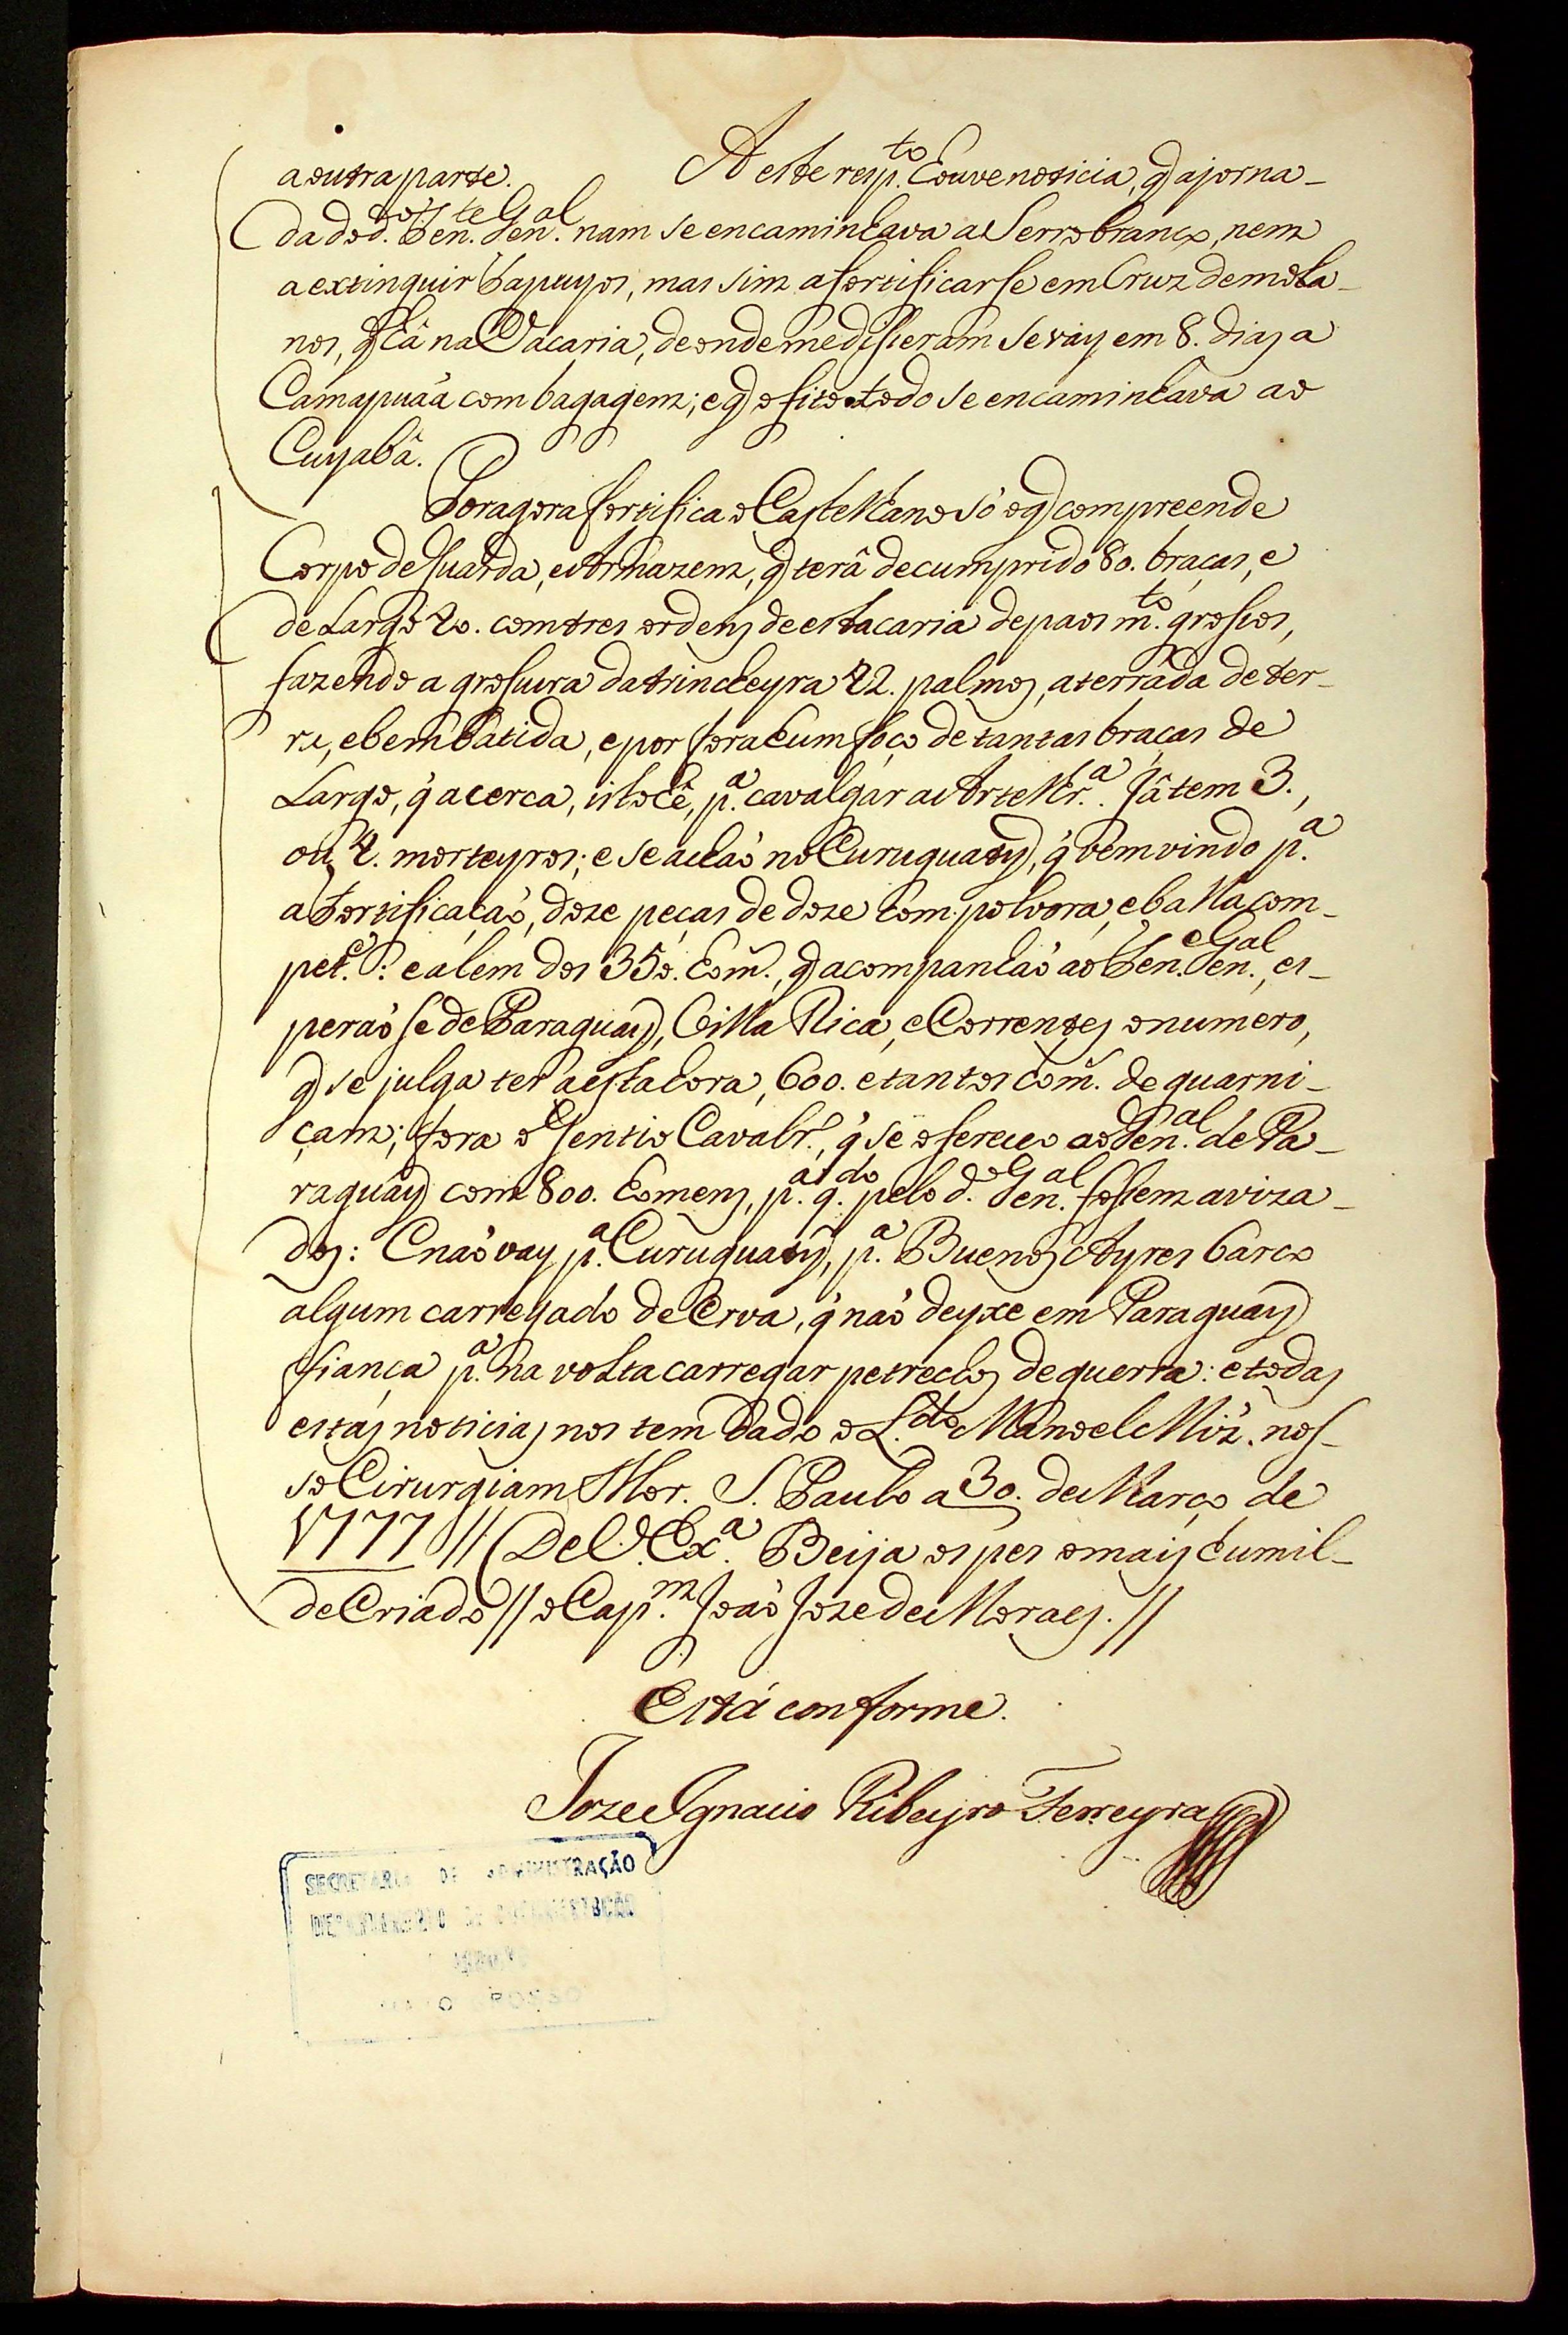 a outra parte. A este resp.to houve noticia, q̃ a jorna_
da do d.o Ten.te Gen.al nam se encaminhava a Serro branco, nem
a extinguir Tapuyos, mas sim a fortificarse em Cruz de mola_
nos, q̃ hâ na Vacaria, de onde me disseram se vay em 8. dias a
Camapuaã com bagagem; e q̃ o fito todo se encaminhava ao
Cuyabâ.
Por agora fortifica o Castelhano só o q̃ compreende
Corpo de Guarda, e Armazem, q̃ terâ de cumprido 80. braças, e
de Largo 40. com tres ordens de estacaria de paos m.to grossos,
fazendo a grossura da trincheyra 22. palmos, aterrada de ter_
ra, e bem batida, e por fora hum foço de tantas braças de
Largo, q̃ a cerca, isto hê, p.a cavalgar a Artelhr.a. Jâ tem 3.,
ou 4. morteyros; e se achaõ no Curuguaty, q̃ vem vindo p.a
a Fortificaçaõ, doze peças de doze com polvora, e balla com_
pet.e: e alem dos 350. hom̃., q̃ acompanhaõ ao Ten.e Gen.al, es_
peraõ se de Paraguay, Villa Rica, e Correntes o numero,
q̃ se julga ter a esta hora, 600. e tantos hom̃. de guarni_
çam; fora o Gentio Cavalr.o, q̃ se offereceo ao Gen.al de Pa_
raguay com 800. homens, p.a q.do pelo d.o Gen.al fossem aviza_
dos: E naõ vay p.a Curuguaty, p.a Buenos Ayres barco
algum carregado de Erva, q̃ naõ deyxe em Paraguay
fiança p.a na volta carregar petrechos de guerra: e todas
estas noticias nos tem dado o L.do Manoel Miz̃. nos_
so Cirurgiam Mor. S. Paulo a 30. de Março de
1777 // De V. Ex.a Beija os pes o mais humil_
de Criado // o Cap.m Joaõ Joze de Moraes. //
Está conforme.
Joze Ignacio Ribeyro Ferreyra
SECRETARIA DE ADMINISTRAÇÃO
DEPARTAMENTO DE DOCUMENTAÇÃO
ARQUIVO
MATO GROSSO